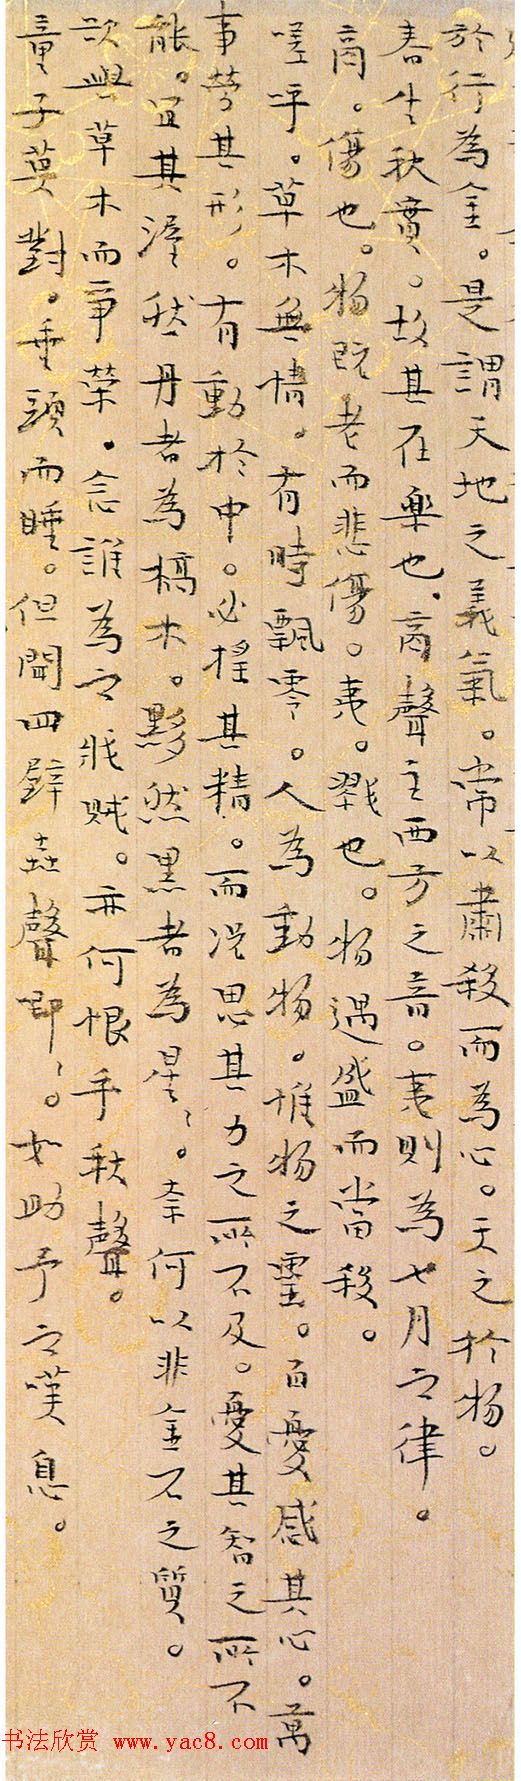 於行為金。是謂天地之義氣。常以肅殺而為心。天之於物。
春生秋實。故其在樂也。商聲主西方之音。夷則為七月之律。
商。傷也。物既老而悲傷。夷。戮也。物遇盛而當殺。
嗟呼。草木無情。有時飄零。人為動物。惟物之靈。百憂感其心。萬
事勞其形。有動於中。必搖其精。而況思其力之所不及。憂其智之所不
能。宜其渥然丹者為槁木。黟然黑者為星〻。奈何以非金石之質。
欲與草木而爭榮。念誰為之戕賊。亦何恨乎秋聲。
童子莫對。垂頭而睡。但聞四壁蟲聲唧〻。如助予之嘆息。
书法欣赏 www.yac8.com